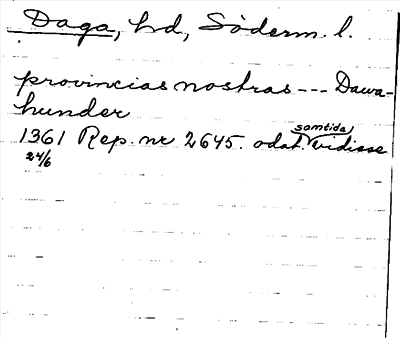 Daga, hd, Söderm. l.
provincias nostras --- Dawa-
hunder
1361 Rep. nr 2645. odat. samtida vidisse
24/6